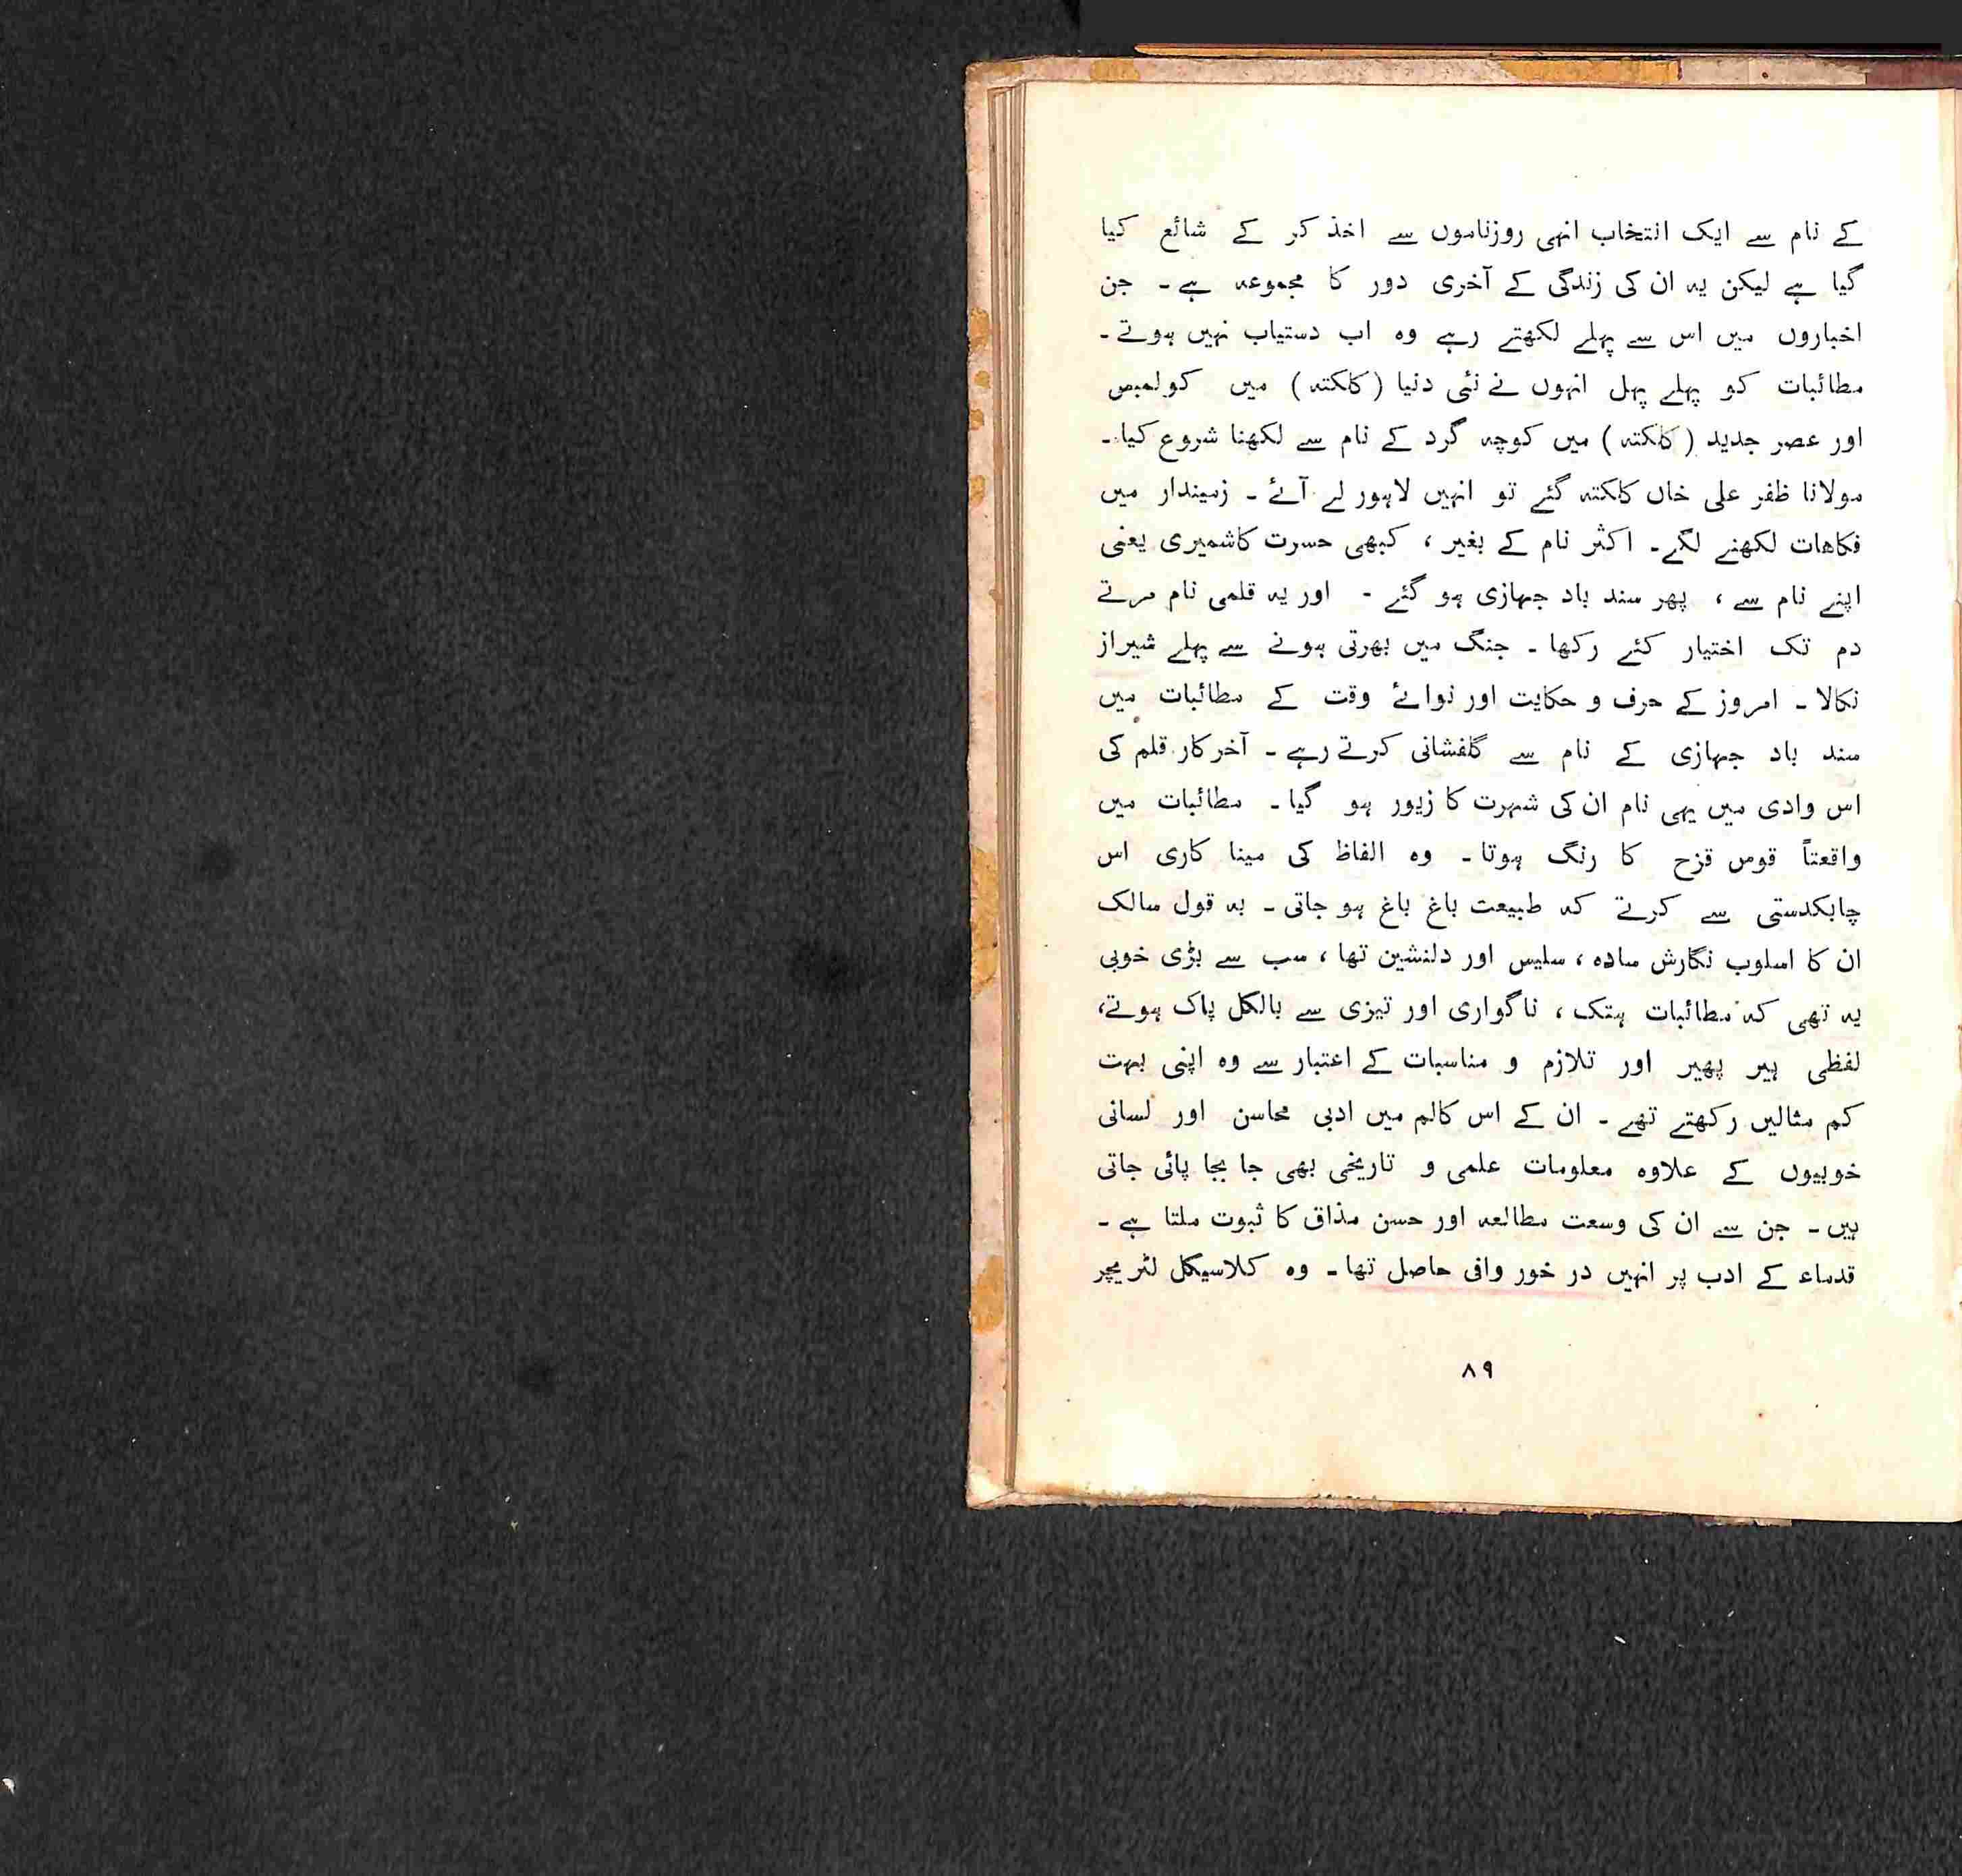 کے نام سے ایک انتخاب انہی روزناموں سے اخذ کر کے شائع کیا
گیا ہے لیکن یہ ان کی زندگی کے آخری دور کا مجموعہ ہے ۔ جن
اخباروں میں اس سے پہلے لکھتے رہے وہ اب دستیاب نہیں ہوتے ۔
مطائبات کو پہلے پہل انہوں نے نئی دنیا (کلکتہ) میں کولمبس
اور عصر جدید (کلکتہ) میں کوچہ گرد کے نام سے لکھنا شروع کیا ۔
مولانا ظفر علی خاں کلکتہ گئے تو انہیں لاہور لے آئے ۔ زمیندار میں
فکاهات لکھنے لگے ۔ اکثر نام کے بغیر ، کبھی حسرت کاشمیری یعنی
اپنے نام سے ، پھر سند باد جہازی ہو گئے ۔ اور یہ قلمی نام مرتے
دم تک اختیار کئے رکھا ۔ جنگ میں بھرتی ہونے سے پہلے شیراز
نکالا ۔ امروز کے حرف و حکایت اور نوائے وقت کے مطائبات میں
سند باد جہازی کے نام سے گلفشانی کرتے رہے ۔ آخر کار قلم کی
اس وادی میں یہی نام ان کی شہرت کا زیور ہو گیا ۔ مطائبات میں
واقعتاً قوس قزح کا رنگ ہوتا ۔ وہ الفاظ کی مینا کاری اس
چابکدستی سے کرتے کہ طبیعت باغ باغ ہو جاتی ۔ بہ قول سالک
ان کا اسلوب نگارش سادہ ، سلیس اور دلنشین تھا ، سب سے بڑی خوبی
یہ تھی کہ مطائبات ہتک ، ناگواری اور تیزی سے بالکل پاک ہوتے،
لفظی ہیر پھیر اور تلازم و مناسبات کے اعتبار سے وہ اپنی بہت
کم مثالیں رکھتے تھے ۔ ان کے اس کالم میں ادبی محاسن اور لسانی
خوبیوں کے علاوہ معلومات علمی و تاریخی بھی جا بجا پائی جاتی
ہیں ۔ جن سے ان کی وسعت مطالعہ اور حسن مذاق کا ثبوت ملتا ہے ۔
قدماء کے ادب پر انہیں در خور وافی حاصل تھا ۔ وہ کلاسیکل لٹریچر
۸۹